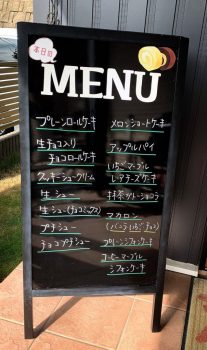 本日の
MENU
プレーンロールケーキ
生チョコ入り
チョコロールケーキ
クッキーシュークリーム
生シュー
生シュー(チョコミックス)
プチシュー
チョコプチシュー
メロンショートケーキ
アップルパイ
いちごマーブル
レアチーズケーキ
抹茶ガトーショコラ
マカロン
(バニラ・いちご・チョコ)
プレーンシフォンケーキ
コーヒーマーブル
シフォンケーキ